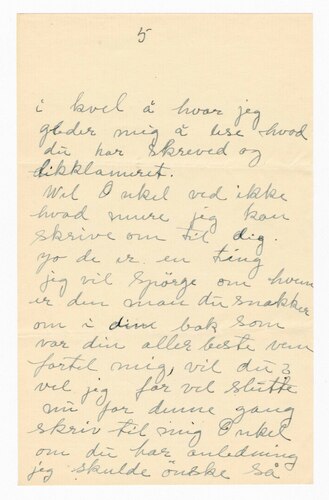 5
i kvel å hvor jeg
gleder mig å lese hvad
du har skreved og
dikklameret.
Wel Onkel ved ikke
hvad mure jeg kan
skrive om til dig.
yo de er en ting
jeg vil spörge om hvem
er den man du snakker
om i dine bok som
var din aller beste ven
fortel mig, vil du?
vel jeg får vel slutte
nu for denne gang
skriv til mig Onkel
om du har anledning
jeg skulde önske så